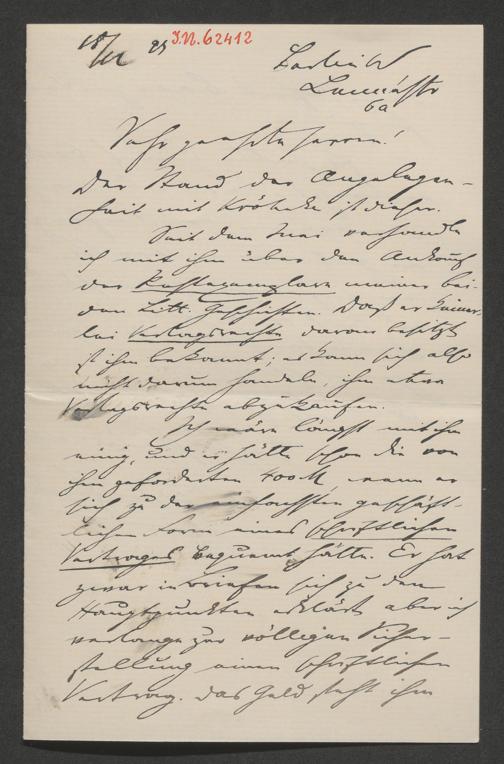 18/12 95 I.N. 62412
Berlin W
Lennéstr
6a
Sehr geehrte Herren!
Der Stand der Angelegen-
heit mit Kröhnke ist dieser.
Seit dem Mai verhandle
ich mit ihm über den Ankauf
der Restexemplare meiner bei-
den Litt. Geschichten. Daß er keiner-
lei Verlagsrechte daran besitzt
ist ihm bekannt; es kann sich also
nicht darum handeln, ihm etwa
Verlagsrechte abzukaufen.
Ich wäre längst mit ihm
einig, und er hätte schon die von
ihm geforderten 400 M, wenn er
sich zu der einfachsten geschäft-
lichen Form eines schriftlichen
Vertrages bequemt hätte. Er hat
zwar in Briefen sich zu den
Hauptpunkten erklärt aber ich
verlange zur völligen Sicher-
stellung einen schriftlichen
Vertrag. Das Geld steht ihm